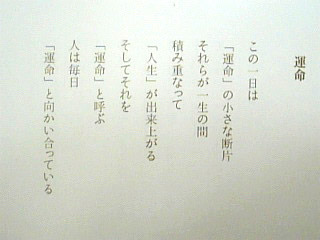 運命
この一日は
「運命」の小さな断片
それらが一生の間
積み重なって
「人生」が出来上がる
そしてそれを
「運命」と呼ぶ
人は毎日
「運命」と向かい合っている